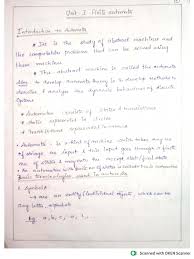 Unit - I Finite automata
Introduction to Automata
* It is the study of abstract machines and
the computation problems that can be solved using
these machines.
* The abstract machine is called the automata
to develop methods to
describe & analyse the dynamic behaviour of discrete
systems
* Automata consists of states & transitions
* State represented in circles
* Transitions represented in arrows
* Automata is a kind of machine which takes
of strings as input & this input goes through a finite
no. of states & may enter the accept state/final state
Basic terminologies used in automata
1. Symbols
are an entity/individual objects, which can be
any letter, alphabets
Eg. a, b, c,
Scanned with OKEN Scanner